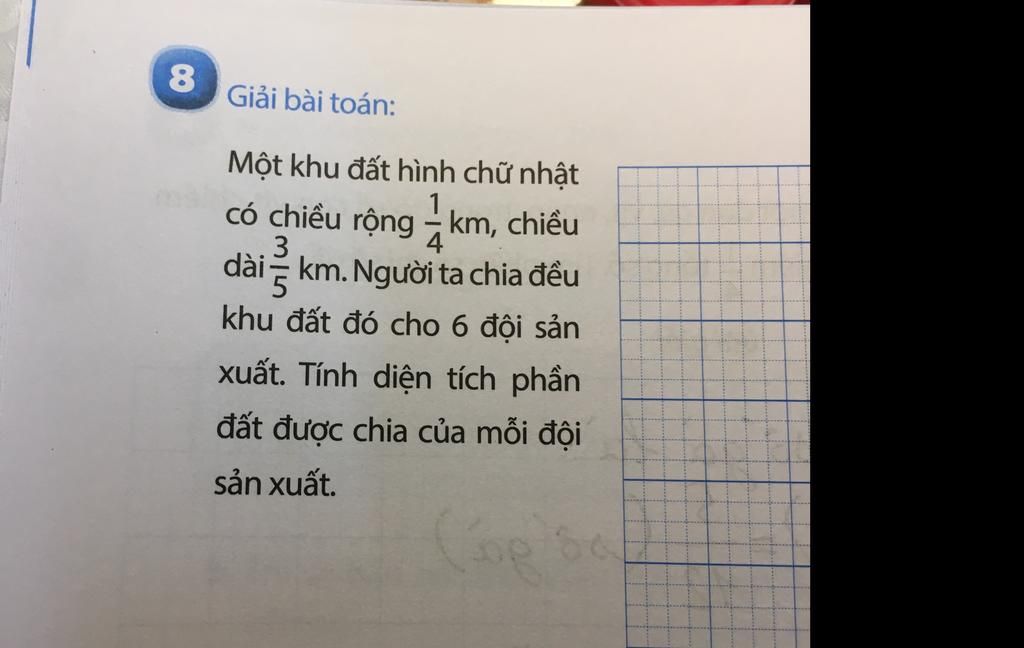 8
Giải bài toán:
Một khu đất hình chữ nhật
có chiều rộng 1/4 km, chiều
dài 3/5 km. Người ta chia đều
khu đất đó cho 6 đội sản
xuất. Tính diện tích phần
đất được chia của mỗi đội
sản xuất.